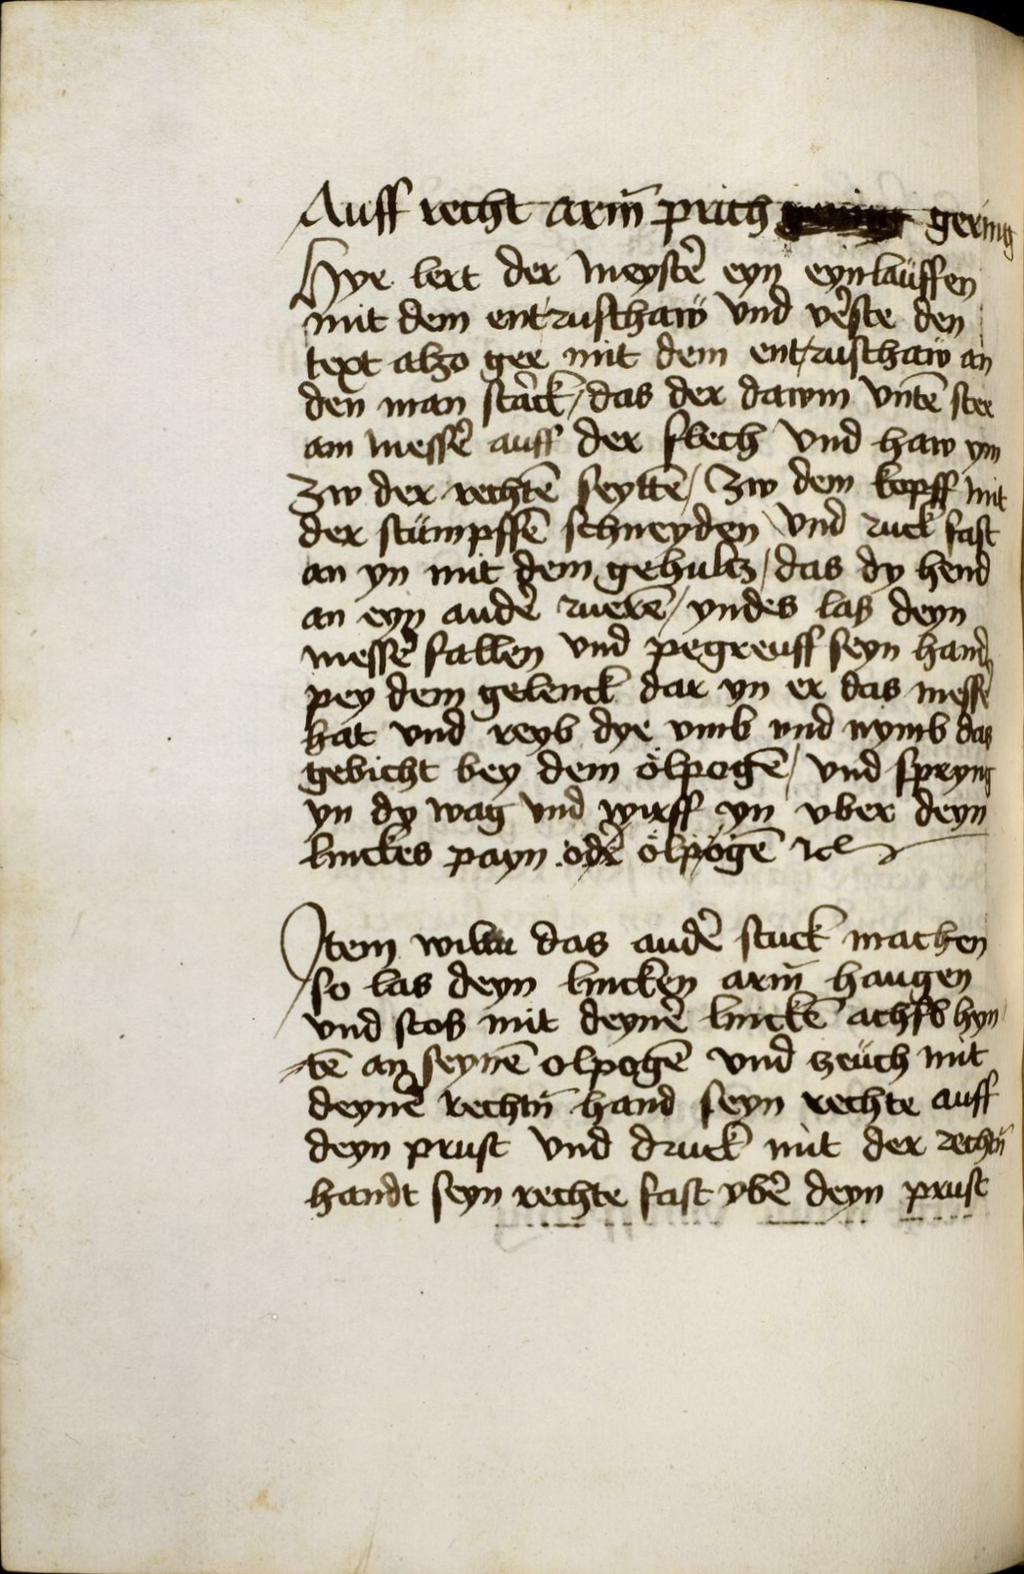 Auff recht arm̄ prich gering
Hyr lert der meystẽ eyn eynlauffen
mit dem entrusthaw̎ vnd vẽste den
text alzo ger mit dem entrusthaw̎ an
den man stäck / das der dawm vntē stee
am messẽ auff der flech vnd haw ym
zw der rechtē seyttē / zw dem kopff mit
der stümpffē schneyden vnd ruck fast
an yn mit dem gehultz / das dy hend
an eyn andẽ ruerē / yndes las deyn
messẽ fallen vnd pegreuff seyn handt
pey dem gelenck dar yn er das messẽ
hat vnd reyb dye vmb vnd nymb das
gebicht bey dem ölpogē / vnd spryng
yn dy wag vnd wirff yn vber deyn
linckes payn odẽ ölpögē ꝛc
Item wiltu das andẽ stuck machen
so las deyn lincken arm̄ hangen
vnd stos mit deynẽ linckē achsl hyn
tē an seynē olpogē vnd zeüch mit
deynẽ rechtn̄ hand seyn rechte auff
deyn prust vnd druck mit der rechtn̄
handt seyn rechte fast vbẽ deyn prust